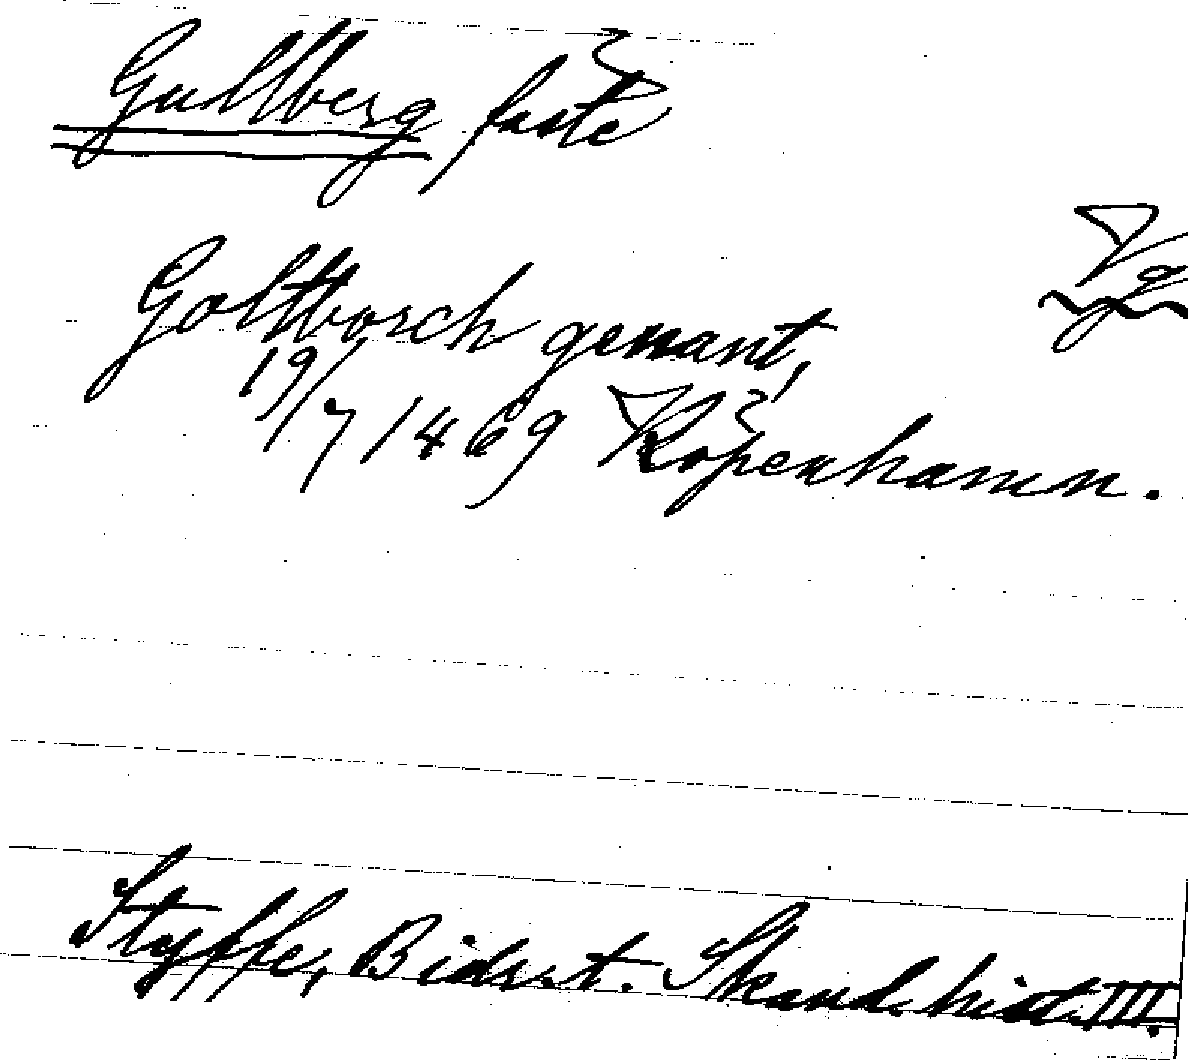 Gullberg fäste
Vg
Goltborsch genant,
19/7 1469 Köpenhamn.
Styffe, Bidr. t. Skand. hist. III.